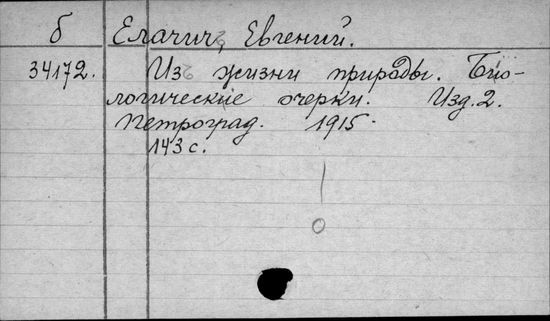 б Елачичъ, Евгений.
34172. Изъ жизни природы. Био-
логические очерки. Изд. 2.
Петроград. 1915.
143 с.